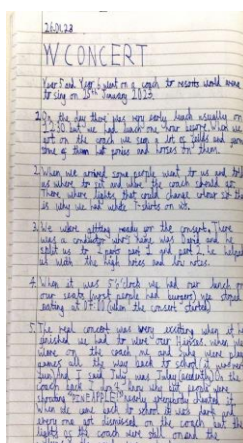 26.01.23
W CONCERT
Year 5 and Year 6 went on a coach to resorts world arena
to sing on 25th January 2023.
1. On the day there was very early lunch usually on
12:30 but we had lunch one hour before. When we
got on the coach we seen a lot of fields and
some of them had ponies and horses on them.
2. When we arrived some people went to us and told
us where to sit and where the coach should go.
There where lights that could change colour
is why we had white T-shirts on it.
3. We where sitting ready for the consert. There
was a conductor who's name was David and he
split us to 2 parts part 1 and part 2, he helped
us with the high notes and low notes.
4. When it was 5 o'clock we had our lunch on
our seats (most people had burgers) we stoped
eating at 07:00 (when the consert started)
5. The real concert was were exciting when it
finished we had to were our When we
were on the coach me and were play
games all the way back to school it was
fun! And I said it was On the
coach back I don't know why but people were
shouting "PINEAPPLE" nearly everybody chanted it
When we came back to school it was dark and
every one got dismissed on the coach but the
lights of the coach were still on and the